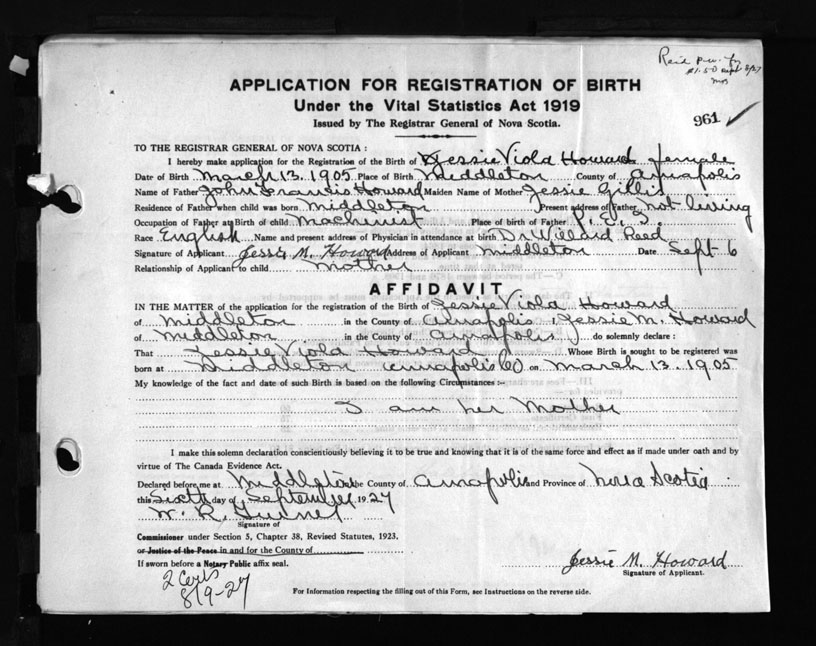 Reid
$1.50 Sept 8/27
APPLICATION FOR REGISTRATION OF BIRTH
Under the Vital Statistics Act 1919
961
Issued by The Registrar General of Nova Scotia.
TO THE REGISTRAR GENERAL OF NOVA SCOTIA :
I hereby make application for the Registration of the Birth of Jessie Viola Howard female
Date of Birth March 13. 1905 Place of Birth Middleton County of Annapolis
Name of Father John Francis Howard Maiden Name of Mother Jessie Gillis
Residence of Father when child was born Middleton Present address of Father not living
Occupation of Father at Birth of child Machinist Place of birth of Father P. E. I.
Race English Name and present address of Physician in attendance at birth Dr Willard Reed
Signature of Applicant Jessie M. Howard Address of Applicant Middleton Date Sept 6
Relationship of Applicant to child Mother
AFFIDAVIT
IN THE MATTER of the application for the registration of the Birth of Jessie Viola Howard
of Middleton in the County of Annapolis, Jessie M. Howard
of Middleton in the County of Annapolis do solemnly declare :
That Jessie Viola Howard Whose Birth is sought to be registered was
born at Middleton Annapolis Co on March 13. 1905
My knowledge of the fact and date of such Birth is based on the following Circumstances :-
I am her Mother
I make this solemn declaration conscientiously believing it to be true and knowing that it is of the same force and effect as if made under oath and by
virtue of The Canada Evidence Act.
Declared before me at Middleton the County of Annapolis and Province of Nova Scotia :
this Sixth day of September 1927
W. R.
Signature of
Commissioner under Section 5, Chapter 38, Revised Statutes, 1923.
or Justice of the Peace in and for the County of
If sworn before a Notary Public affix seal.
Jessie M. Howard
Signature of Applicant.
2 Certs
8/9-27
For Information respecting the filling out of this Form, see Instructions on the reverse side.